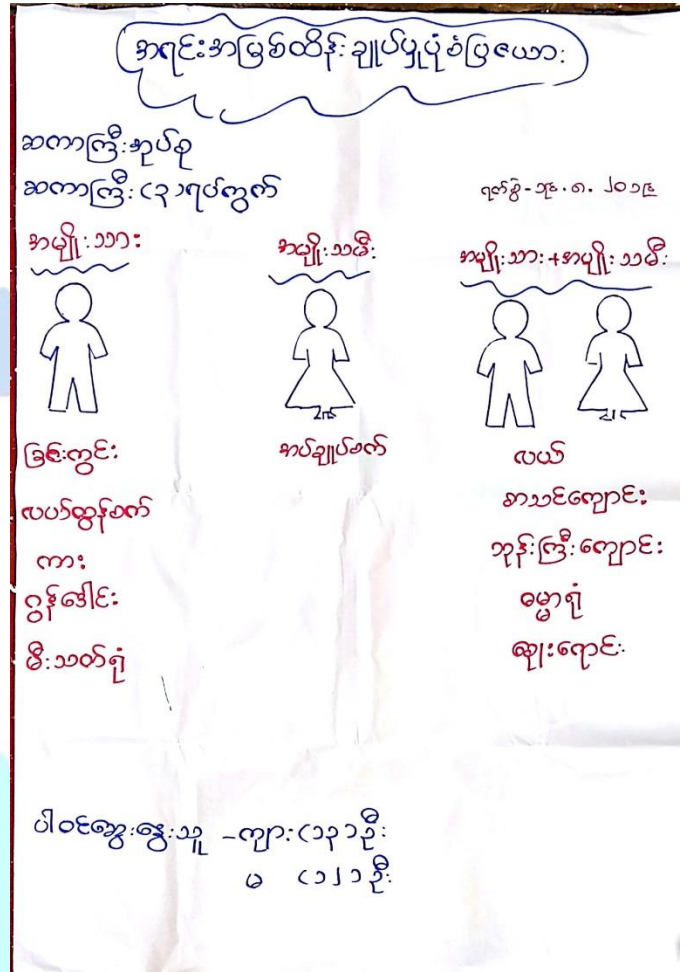 အရင်းအမြစ်ထိန်းချုပ်မှုပုံစံပြဇယား
ဆကာကြီးအုပ်စု
ဆကာကြီး(၃)ရပ်ကွက်
ရက်စွဲ-၁၄.၈.၂၀၁၄
အမျိုးသား
အမျိုးသမီး
အမျိုးသား+အမျိုးသမီး
ခြင်းကွင်း
လယ်ထွန်စက်
ကား
ဂွန်ဒေါင်း
မီးသတ်ရုံ
အပ်ချုပ်စက်
လယ်
စာသင်ကျောင်း
ဘုန်းကြီးကျောင်း
ဓမ္မာရုံ
ဈေးရောင်း
ပါဝင်ဆွေးနွေးသူ -ကျား(၁၃)ဦး
မ (၁၂)ဦး